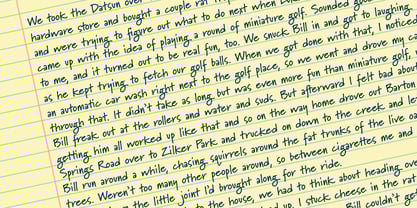 We took the Datsun over
hardware store and bought a couple rat
and were trying to figure out what to do next when
came up with the idea of playing a round of miniature golf. Sounded good
to me, and it turned out to be real fun, too. We snuck Bill in and got to laughing
as he kept trying to fetch our golf balls. When we got done with that, I noticed
an automatic car wash right next to the golf place, so we went and drove my ca
through that. It didn't take as long but was even more fun than miniature golf, w
Bill freak out at the rollers and water and suds. But afterward I felt bad about
getting him all worked up like that and so on the way home drove out Barton
Springs Road over to Zilker Park and trucked on down to the creek and le
Bill run around a while, chasing squirrels around the fat trunks of the live oa
trees. Weren't too many other people around, so between cigarettes me and
the little joint I'd brought along for the ride.
to the house, we had to think about heading ove
up. I stuck cheese in the rat
Bill couldn't go